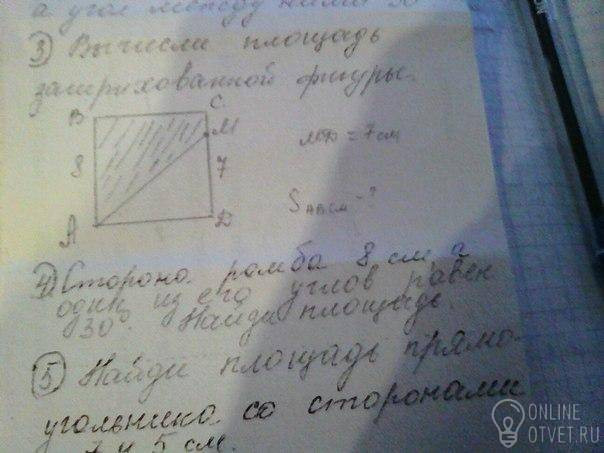 а угол между ними 30
3) Вычисли площадь
заштрихованной фигуры.
B C
M
8 7
A D
MD = 7 см
S ABCM - ?
4) Сторона ромба 8 см, а
один из его углов равен
30°. Найди площадь.
5) Найди площадь прямо-
угольника со сторонами
и 5 см.
ONLINE
OTVET.RU